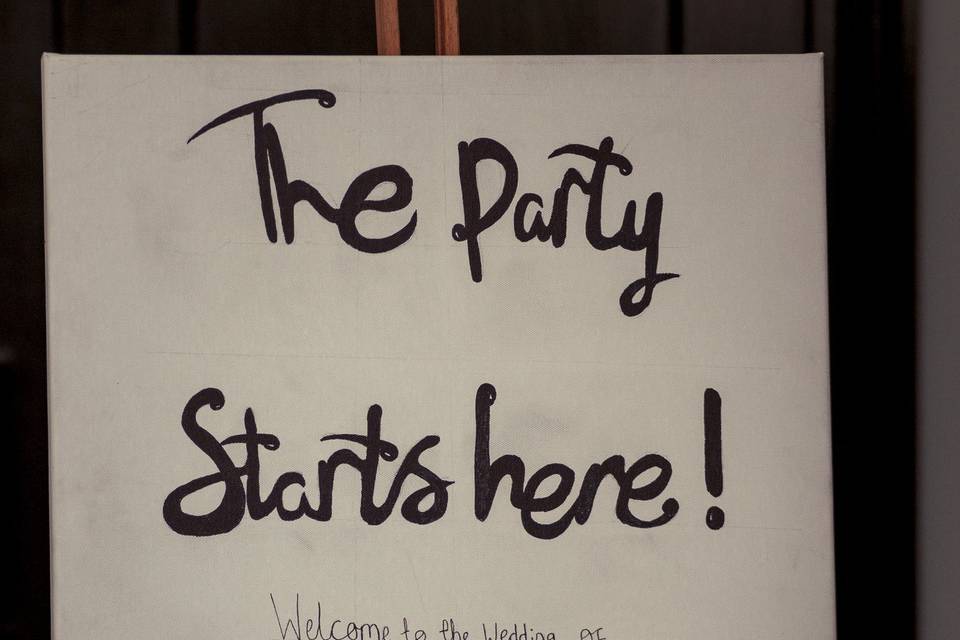 The party
Starts here!
Welcome to the Wedding OF